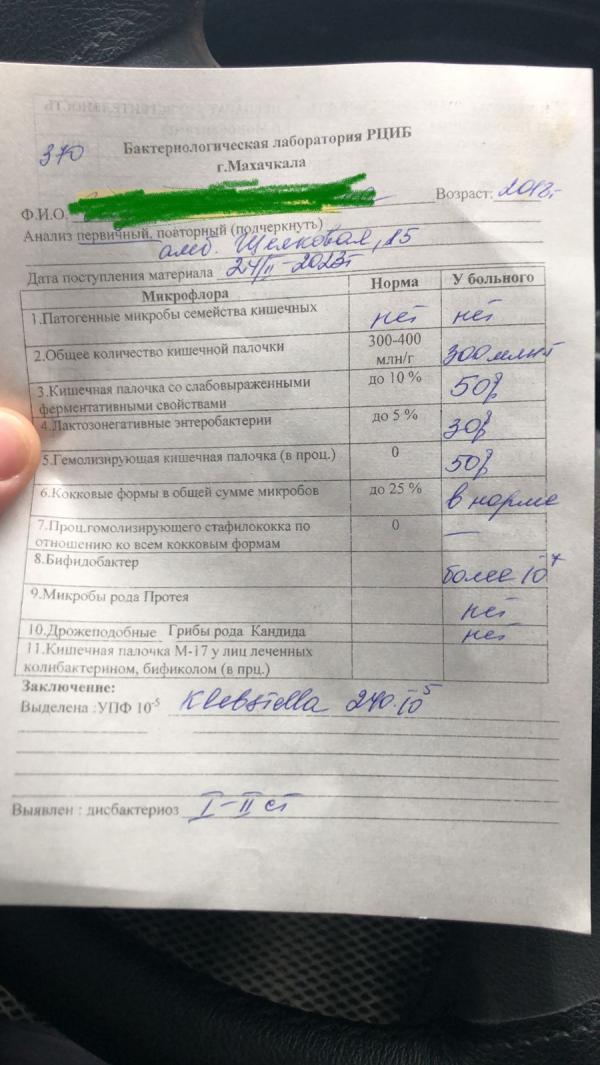 370
Бактериологическая лаборатория РЦИБ
г.Махачкала
Ф.И.О. Возраст: 2018г.
Анализ первичный, повторный (подчеркнуть)
амб. Щелковая, 15
Дата поступления материала 24/II-2023г
Микрофлора Норма У больного
1.Патогенные микробы семейства кишечных нет нет
2.Общее количество кишечной палочки 300-400 млн/г 300 млн/г
3.Кишечная палочка со слабовыраженными ферментативными свойствами до 10 % 50%
4.Лактозонегативные энтеробактерии до 5 % 30%
5.Гемолизирующая кишечная палочка (в проц.) 0 50%
6.Кокковые формы в общей сумме микробов до 25 % в норме
7.Проц.гомолизирующего стафилококка по отношению ко всем кокковым формам 0 —
8.Бифидобактер более 10⁷
9.Микробы рода Протея нет
10.Дрожеподобные Грибы рода Кандида нет
11.Кишечная палочка М-17 у лиц леченных колибактерином, бификолом (в прц.)
Заключение:
Выделена :УПФ 10⁻⁵ Klebsiella 240·10⁵
Выявлен : дисбактериоз I-II ст